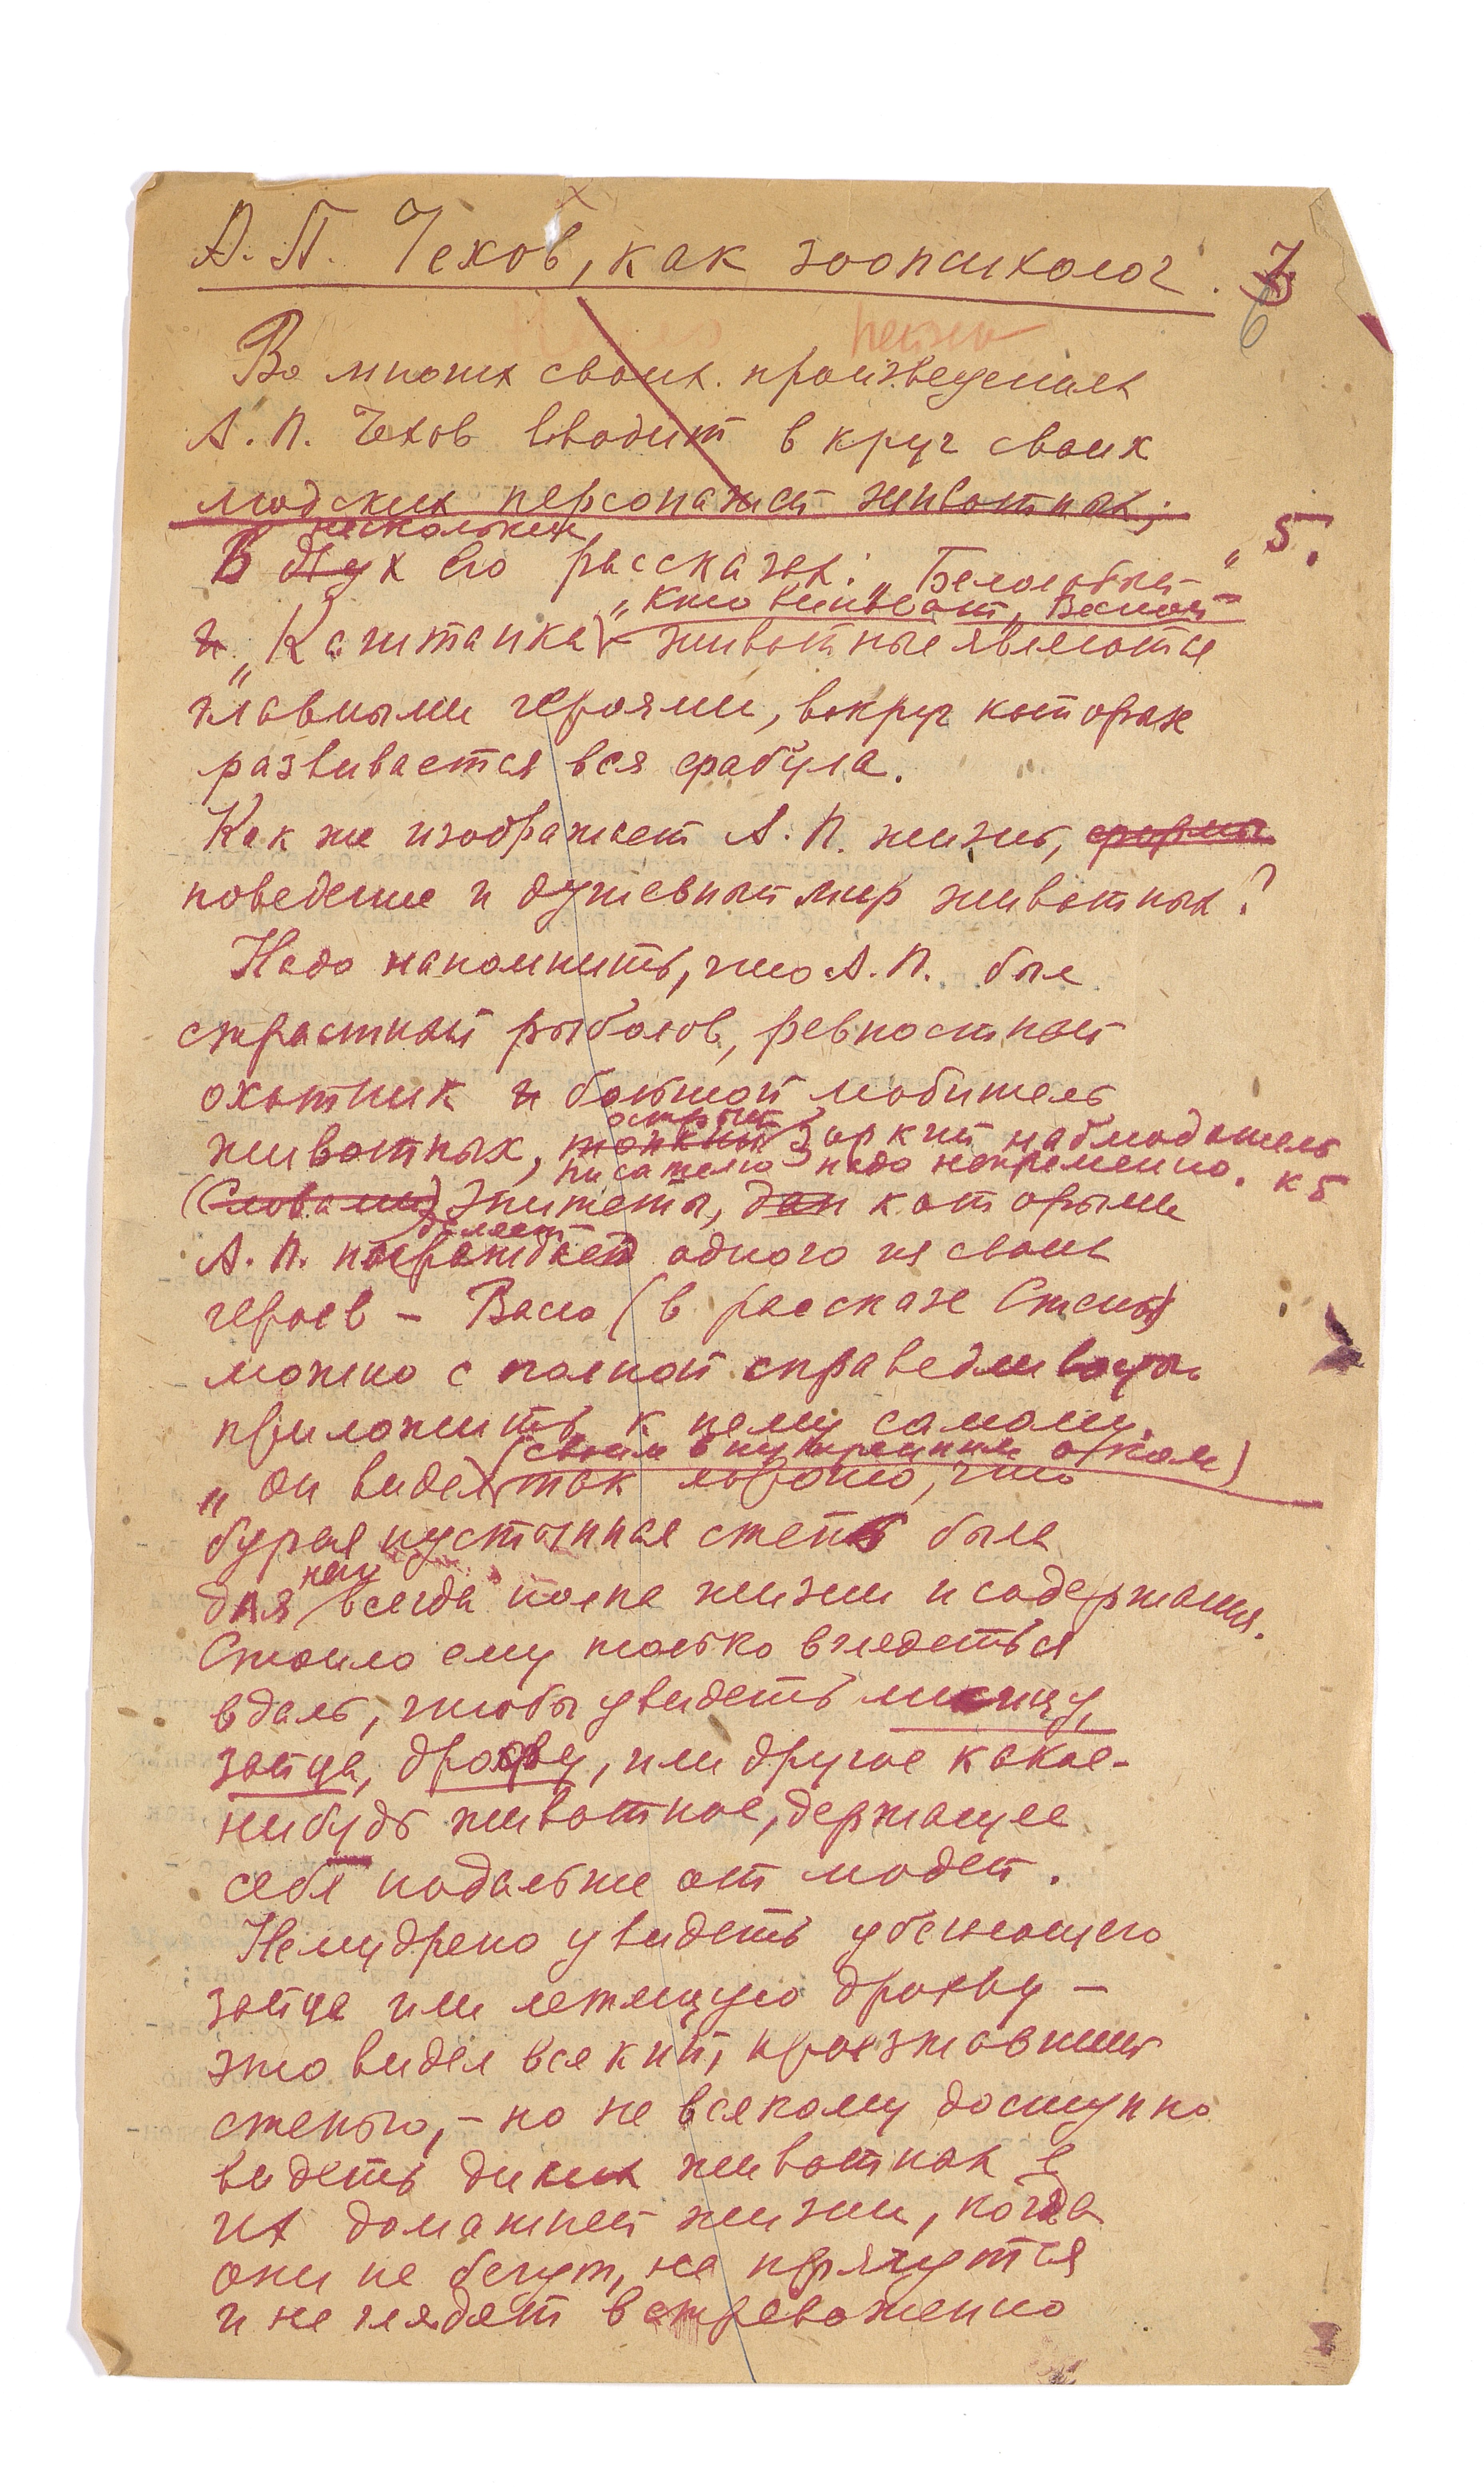 А. П. Чехов, как зоопсихолог. 7
6
Во многих своих произведениях
А. П. Чехов вводит в круг своих
людских персонажей животных;
нескольких
В двух его рассказах: „Белолобый" 5.
„Кто виноват,
и „Каштанка" животные являются
главными героями, вокруг которых
развивается вся фабула.
Как же изображает А. П. жизнь, формы
поведение и душевный мир животных?
Надо напомнить, что А. П. был
страстный рыболов, ревностный
охотник и большой любитель
острый
животных, тонкий зоркий наблюдатель
писателю надо непременно. к 5
(Словами) Эпитеты, дан которыми
А. П. награждает одного из своих
героев – Васю (в рассказе Степь)
можно с полной справедливостью
приложить к нему самому.
(своим внутренним оком)
„Он видел так хорошо, что
бурая пустынная степь была
него
для всегда полна жизни и содержания.
Стоило ему только вглядеться
вдаль, чтобы увидеть лисицу,
зайца, дрофу, или другое какое-
нибудь животное, держащее
себя подальше от людей.
Немудрено увидеть убегающего
зайца или летящую дрохву –
это видел всякий, проезжавший
степью, – но не всякому доступно
видеть диких животных в
их домашней жизни, когда
они не бегут, не прячутся
и не глядят встревоженно